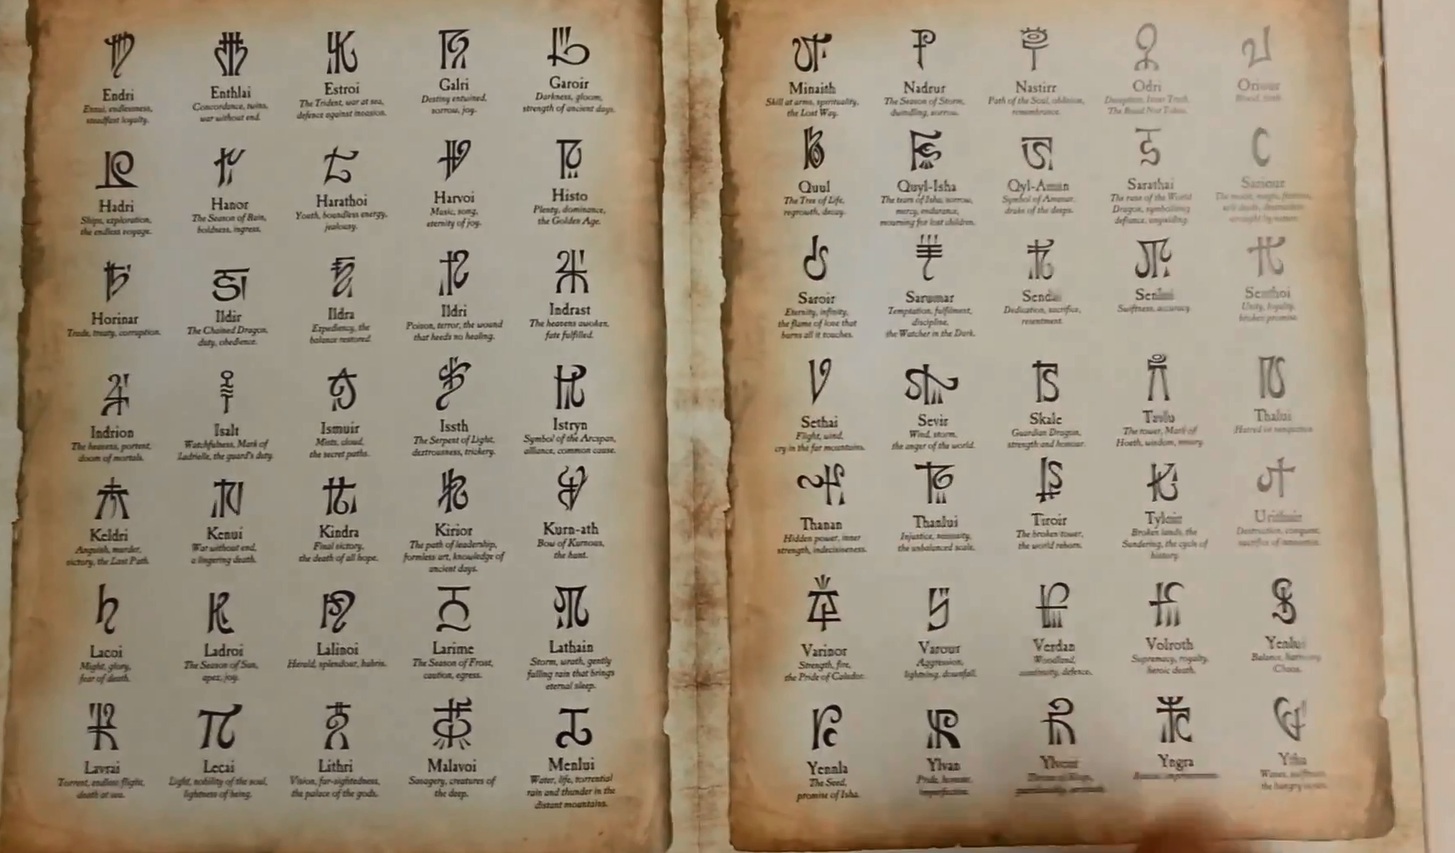 Endri
Ennui, endlessness,
steadfast loyalty.
Enthlai
Concordance, twins,
war without end.
Estroi
The Trident, war at sea,
defence against invasion.
Galri
Destiny entwined,
sorrow, joy.
Garoir
Darkness, gloom,
strength of ancient days.
Hadri
Ships, exploration,
the endless voyage.
Hanor
The Season of Rain,
boldness, ingress.
Harathoi
Youth, boundless energy,
jealousy.
Harvoi
Music, song,
eternity of joy.
Histo
Plenty, dominance,
the Golden Age.
Horinar
Trade, treaty, corruption.
Ildir
The Chained Dragon,
duty, obedience.
Ildra
Expediency, the
balance restored.
Ildri
Poison, terror, the wound
that heeds no healing.
Indrast
The heavens awoken,
fate fulfilled.
Indrion
The heavens, portent,
doom of mortals.
Isalt
Watchfulness, Mark of
Ladrielle, the guard's duty.
Ismuir
Mists, cloud,
the secret paths.
Issth
The Serpent of Light,
dextrousness, trickery.
Istryn
Symbol of the Arcapan,
alliance, common cause.
Keldri
Anguish, murder,
victory, the Last Path.
Kenui
War without end,
a lingering death.
Kindra
Final victory,
the death of all hope.
Kirior
The path of leadership,
formless art, knowledge of
ancient days.
Kurn-ath
Bow of Kurnous,
the hunt.
Lacoi
Might, glory,
fear of death.
Ladroi
The Season of Sun,
apex, joy.
Lalinoi
Herald, splendour, hubris.
Larime
The Season of Frost,
caution, egress.
Lathain
Storm, wrath, gently
falling rain that brings
eternal sleep.
Lavrai
Torrent, endless flight,
death at sea.
Lecai
Light, nobility of the soul,
lightness of being.
Lithri
Vision, far-sightedness,
the palace of the gods.
Malavoi
Savagery, creatures of
the deep.
Menlui
Water, life, torrential
rain and thunder in the
distant mountains.
Minaith
Skill at arms, spirituality,
the Lost Way.
Nadrur
The Season of Storm,
dwindling, sorrow.
Nastirr
Path of the Soul, oblivion,
remembrance.
Odri
Deception, Inner Truth,
The Road Not Taken.
Oriour
Blood,
Quul
The Tree of Life,
regrowth, decay.
Quyl-Isha
The tears of Isha, sorrow,
mercy, endurance,
mourning for lost children.
Qyl-Aman
Symbol of Amanar,
drake of the deeps.
Sarathai
The rune of the World
Dragon, symbolising
defiance, unyielding.
Sariour
The moon, magic,
Saroir
Eternity, infinity,
the flame of love that
burns all it touches.
Sarumar
Temptation, fulfilment,
discipline,
the Watcher in the Dark.
Senda
Dedication, sacrifice,
resentment.
Senlui
Swiftness, accuracy.
Senthoi
Unity, loyalty,
broken promise.
Sethai
Flight, wind,
cry in the far mountains.
Sevir
Wind, storm,
the anger of the world.
Skale
Guardian Dragon,
strength and honour.
Tavlu
The tower, Mark of
Hoeth, wisdom, misery.
Thalui
Hatred or vengeance.
Thanan
Hidden power, inner
strength, indecisiveness.
Thanlui
Injustice, necessity,
the unbalanced scale.
Tiroir
The broken tower,
the world reborn.
Tylvir
Broken lands, the
Sundering, the cycle of
history.
Urithair
Destruction, conquest,
sacrifice of innocence.
Varinor
Strength, fire,
the Pride of Caledor.
Varour
Aggression,
lightning, downfall.
Verdan
Woodland,
continuity, defence.
Volroth
Supremacy, royalty,
heroic death.
Yenlui
Balance, harmony,
Chaos.
Yennla
The Seed,
promise of Isha.
Ylvan
Pride, honour,
imperfection.
Yngra